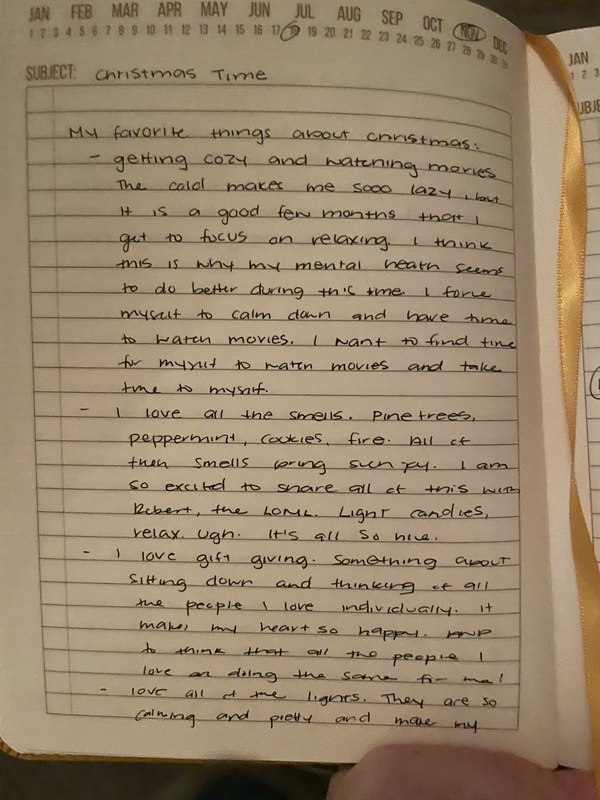 JAN FEB MAR APR MAY JUN JUL AUG SEP OCT NOV DEC
1 2 3 4 5 6 7 8 9 10 11 12 13 14 15 16 17 18 19 20 21 22 23 24 25 26 27 28 29 30 31
SUBJECT: Christmas Time
My favorite things about christmas:
- getting cozy and watching movies
The cold makes me sooo lazy, but
it is a good few months that I
get to focus on relaxing. I think
this is why my mental heath seems
to do better during this time. I force
myself to calm down and have time
to watch movies. I want to find time
for myself to watch movies and take
time to myself.
- I love all the smells. Pine trees,
peppermint, cookies, fire. All of
them smells bring such joy. I am
so excited to share all of this with
Robert, the LOML. Light candles,
relax. Ugh. It's all so nice.
- I love gift giving. Something about
sitting down and thinking of all
the people I love individually. It
makes my heart so happy. AND
to think that all the people I
love are doing the same for me!
- love all of the lights. They are so
calming and pretty and make my
JAN
1 2 3